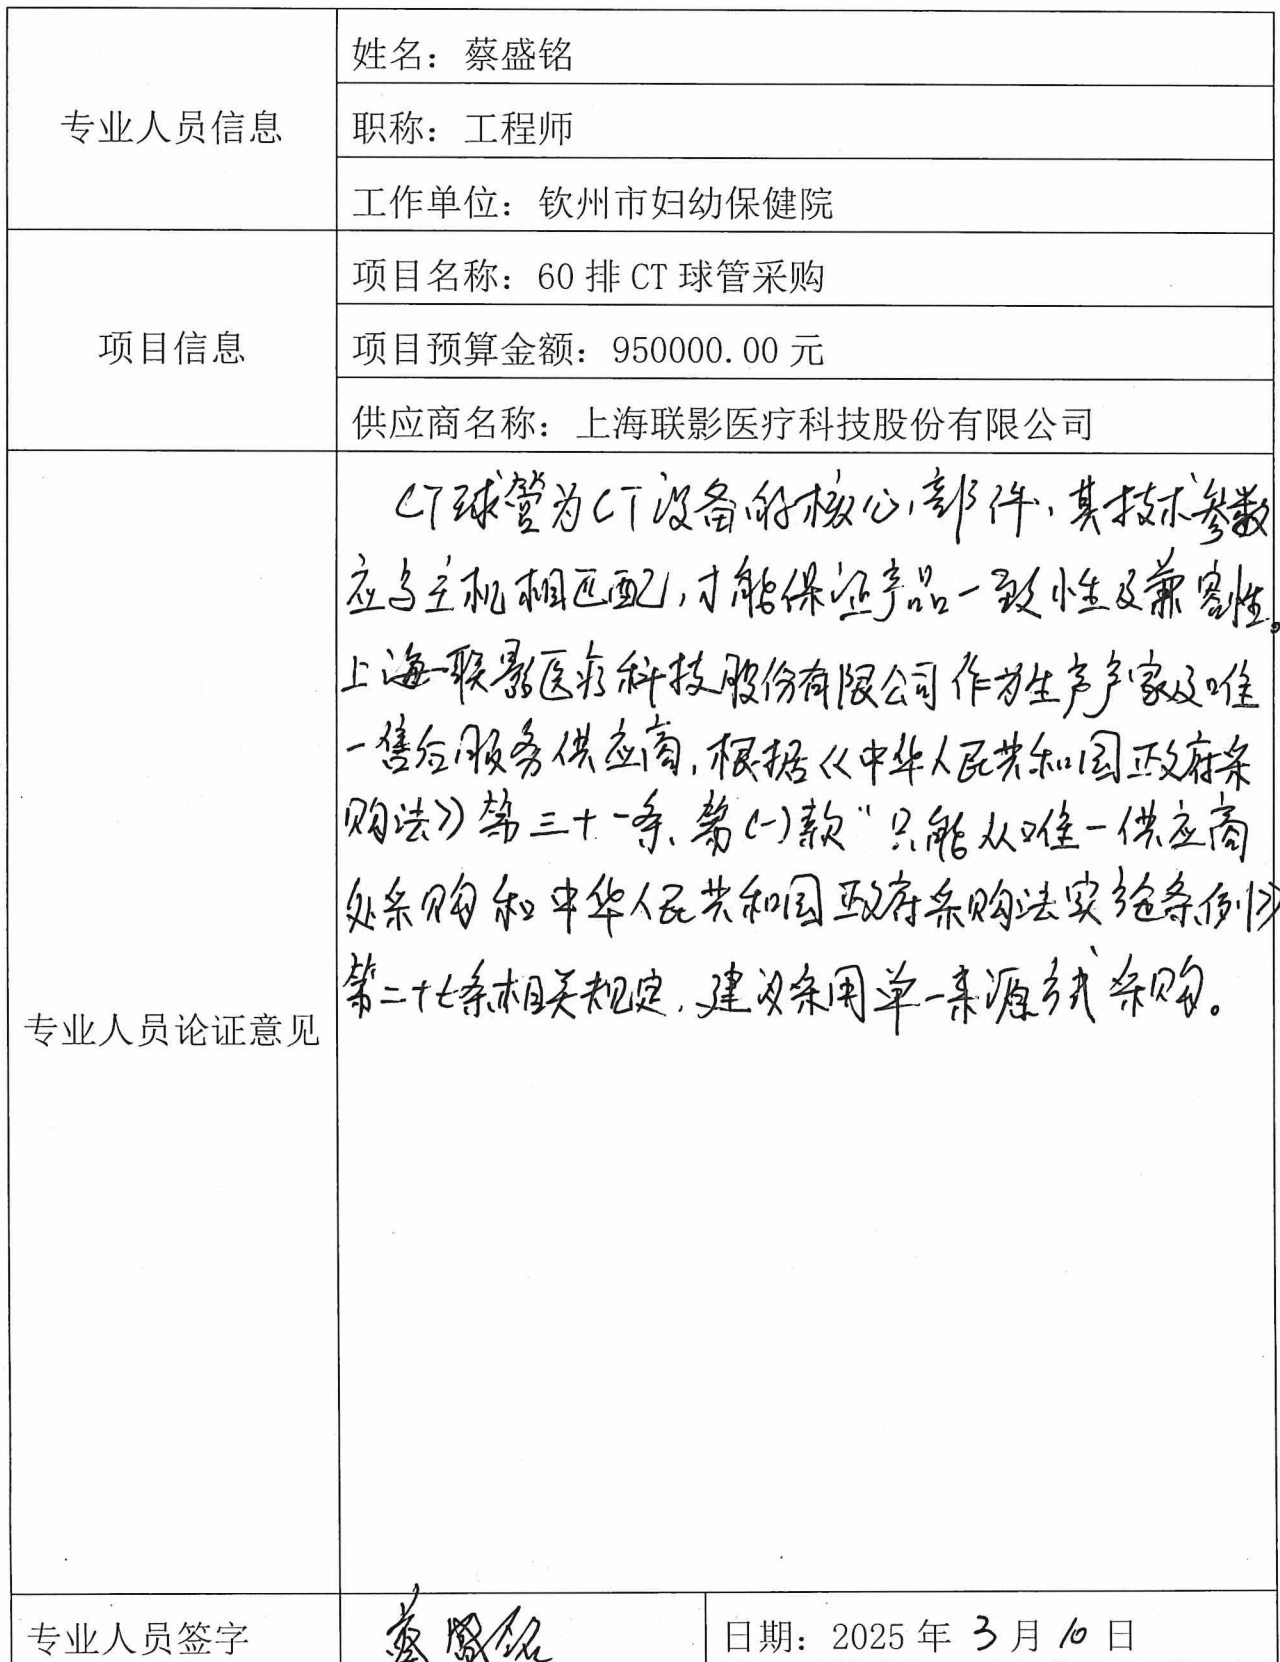 专业人员信息
姓名：蔡盛铭
职称：工程师
工作单位：钦州市妇幼保健院
项目信息
项目名称：60 排 CT 球管采购
项目预算金额：950000.00 元
供应商名称：上海联影医疗科技股份有限公司
专业人员论证意见
CT球管为CT设备的核心部件，其技术参数
应与主机相匹配，才能保证产品一致性及兼容性。
上海联影医疗科技股份有限公司作为生产厂家及唯
一售后服务供应商，根据《中华人民共和国政府采
购法》第三十一条、第(一)款“只能从唯一供应商
处采购和中华人民共和国政府采购法实施条例》
第二十七条相关规定，建议采用单一来源方式采购。
专业人员签字
蔡盛铭
日期：2025 年 3 月 10 日